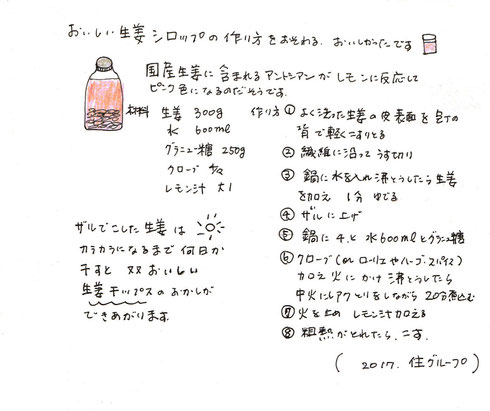 おいしい生姜シロップの作り方をおそわる。おいしかったです
国産生姜に含まれるアントシアンがレモンに反応して
ピンク色になるのだそうです。
材料 生姜 300g
水 600ml
グラニュー糖 250g
クローブ 4ヶ
レモン汁 大1
作り方 ① よく洗った生姜の皮表面を包丁の
背で軽くこすりとる
② 繊維に沿ってうす切り
③ 鍋に水を入れ沸とうしたら生姜
を加え 1分 ゆでる
④ ザルに上げ
⑤ 鍋に4.と水600mlとグラニュ糖
⑥ クローブ(orローリエやハーブ・スパイス)
加え火にかけ沸とうしたら
中火にしアクとりをしながら 20分煮込む
⑦ 火を止め レモン汁加える
⑧ 粗熱がとれたら、こす。
ザルでこした生姜は
カラカラになるまで何日か
干すと 又又おいしい
生姜チップスのおかしが
できあがります。
(2017. 住グループ)